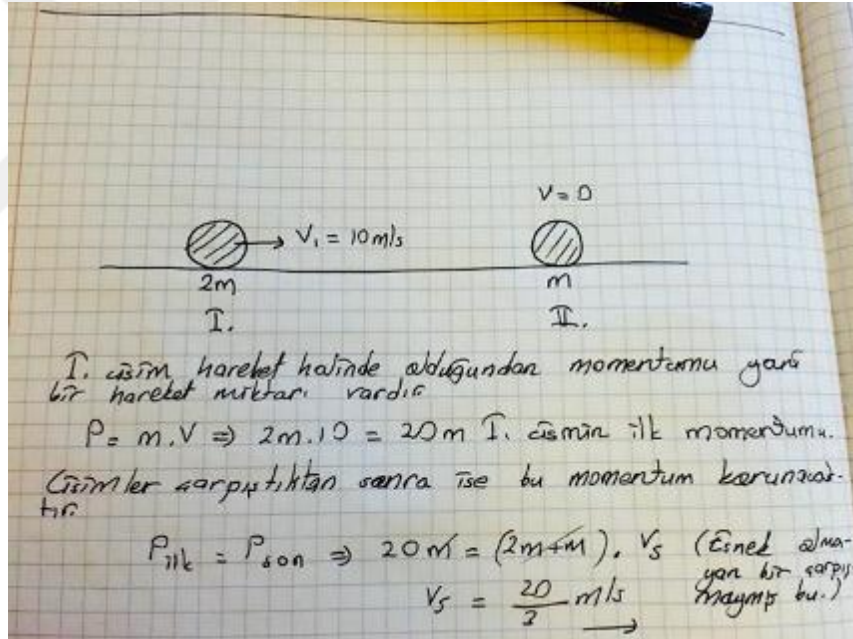 V = 0
V₁ = 10 m/s
2m m
I. II.
I. cisim hareket halinde olduğundan momentumu yani
bir hareket miktarı vardır
P = m.V ⇒ 2m.10 = 20m I. cismin ilk momentumu.
Cisimler çarpıştıktan sonra ise bu momentum korunacak-
tır.
Pilk = Pson ⇒ 20m = (2m+m). Vs (Esnek olma-
yan bir çarpış
maymış bu.)
Vs = 20/3 m/s